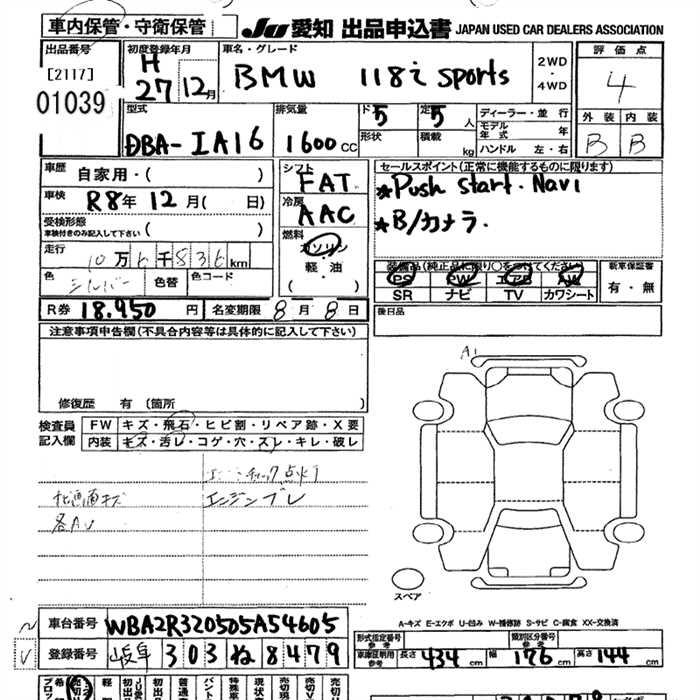 車内保管・守衛保管
JU 愛知 出品申込書 JAPAN USED CAR DEALERS ASSOCIATION
出品番号
[2117]
01039
初度登録年月
H
27 12月
車名・グレード
BMW 118i sports
2WD
・
4WD
評価点
4
外装 内装
B B
型式
DBA-1A16
排気量
1600cc
ド 5
形状
定 5人
積載 kg
ディーラー・並行
モデル年式 年
ハンドル 左・右
車歴
自家用・( )
車検
R8年 12月( 日)
受検形態
車検付きのみ記入して下さい ( )
走行
10万6千836km
色
シルバー
色替
色コード
シフト
FAT
冷房
AAC
燃料
ガソリン
軽・油
( )
セールスポイント(正常に機能するものに限ります)
★Push start. Navi
★B/カメラ.
装備品(純正品に限り○をつけてください)
PS PW エアB AW
SR ナビ TV カワシート
新車保証書
有・無
R券 18.950円
名変期限 8月8日
後日品
注意事項申告欄(不具合内容等は具体的に記入して下さい)
修復歴 有 (箇所 )
検査員
記入欄
FW キズ・飛石・ヒビ割・リペア跡・X要
内装 キズ・汚レ・コゲ・穴・スレ・キレ・破レ
エンジンチェック点灯
エンジンブレ
キズ
各AU
A1
スペア
A-キズ E-エクボ U-凹み W-補修跡 S-サビ C-腐食 XX-交換済
車台番号 WBA2R320505A54605
登録番号 岐阜 303 ね 8479
形式指定番号
参考
類別区分番号
参考
車庫証明用
参考
長さ 434cm 幅 176cm 高さ 144cm